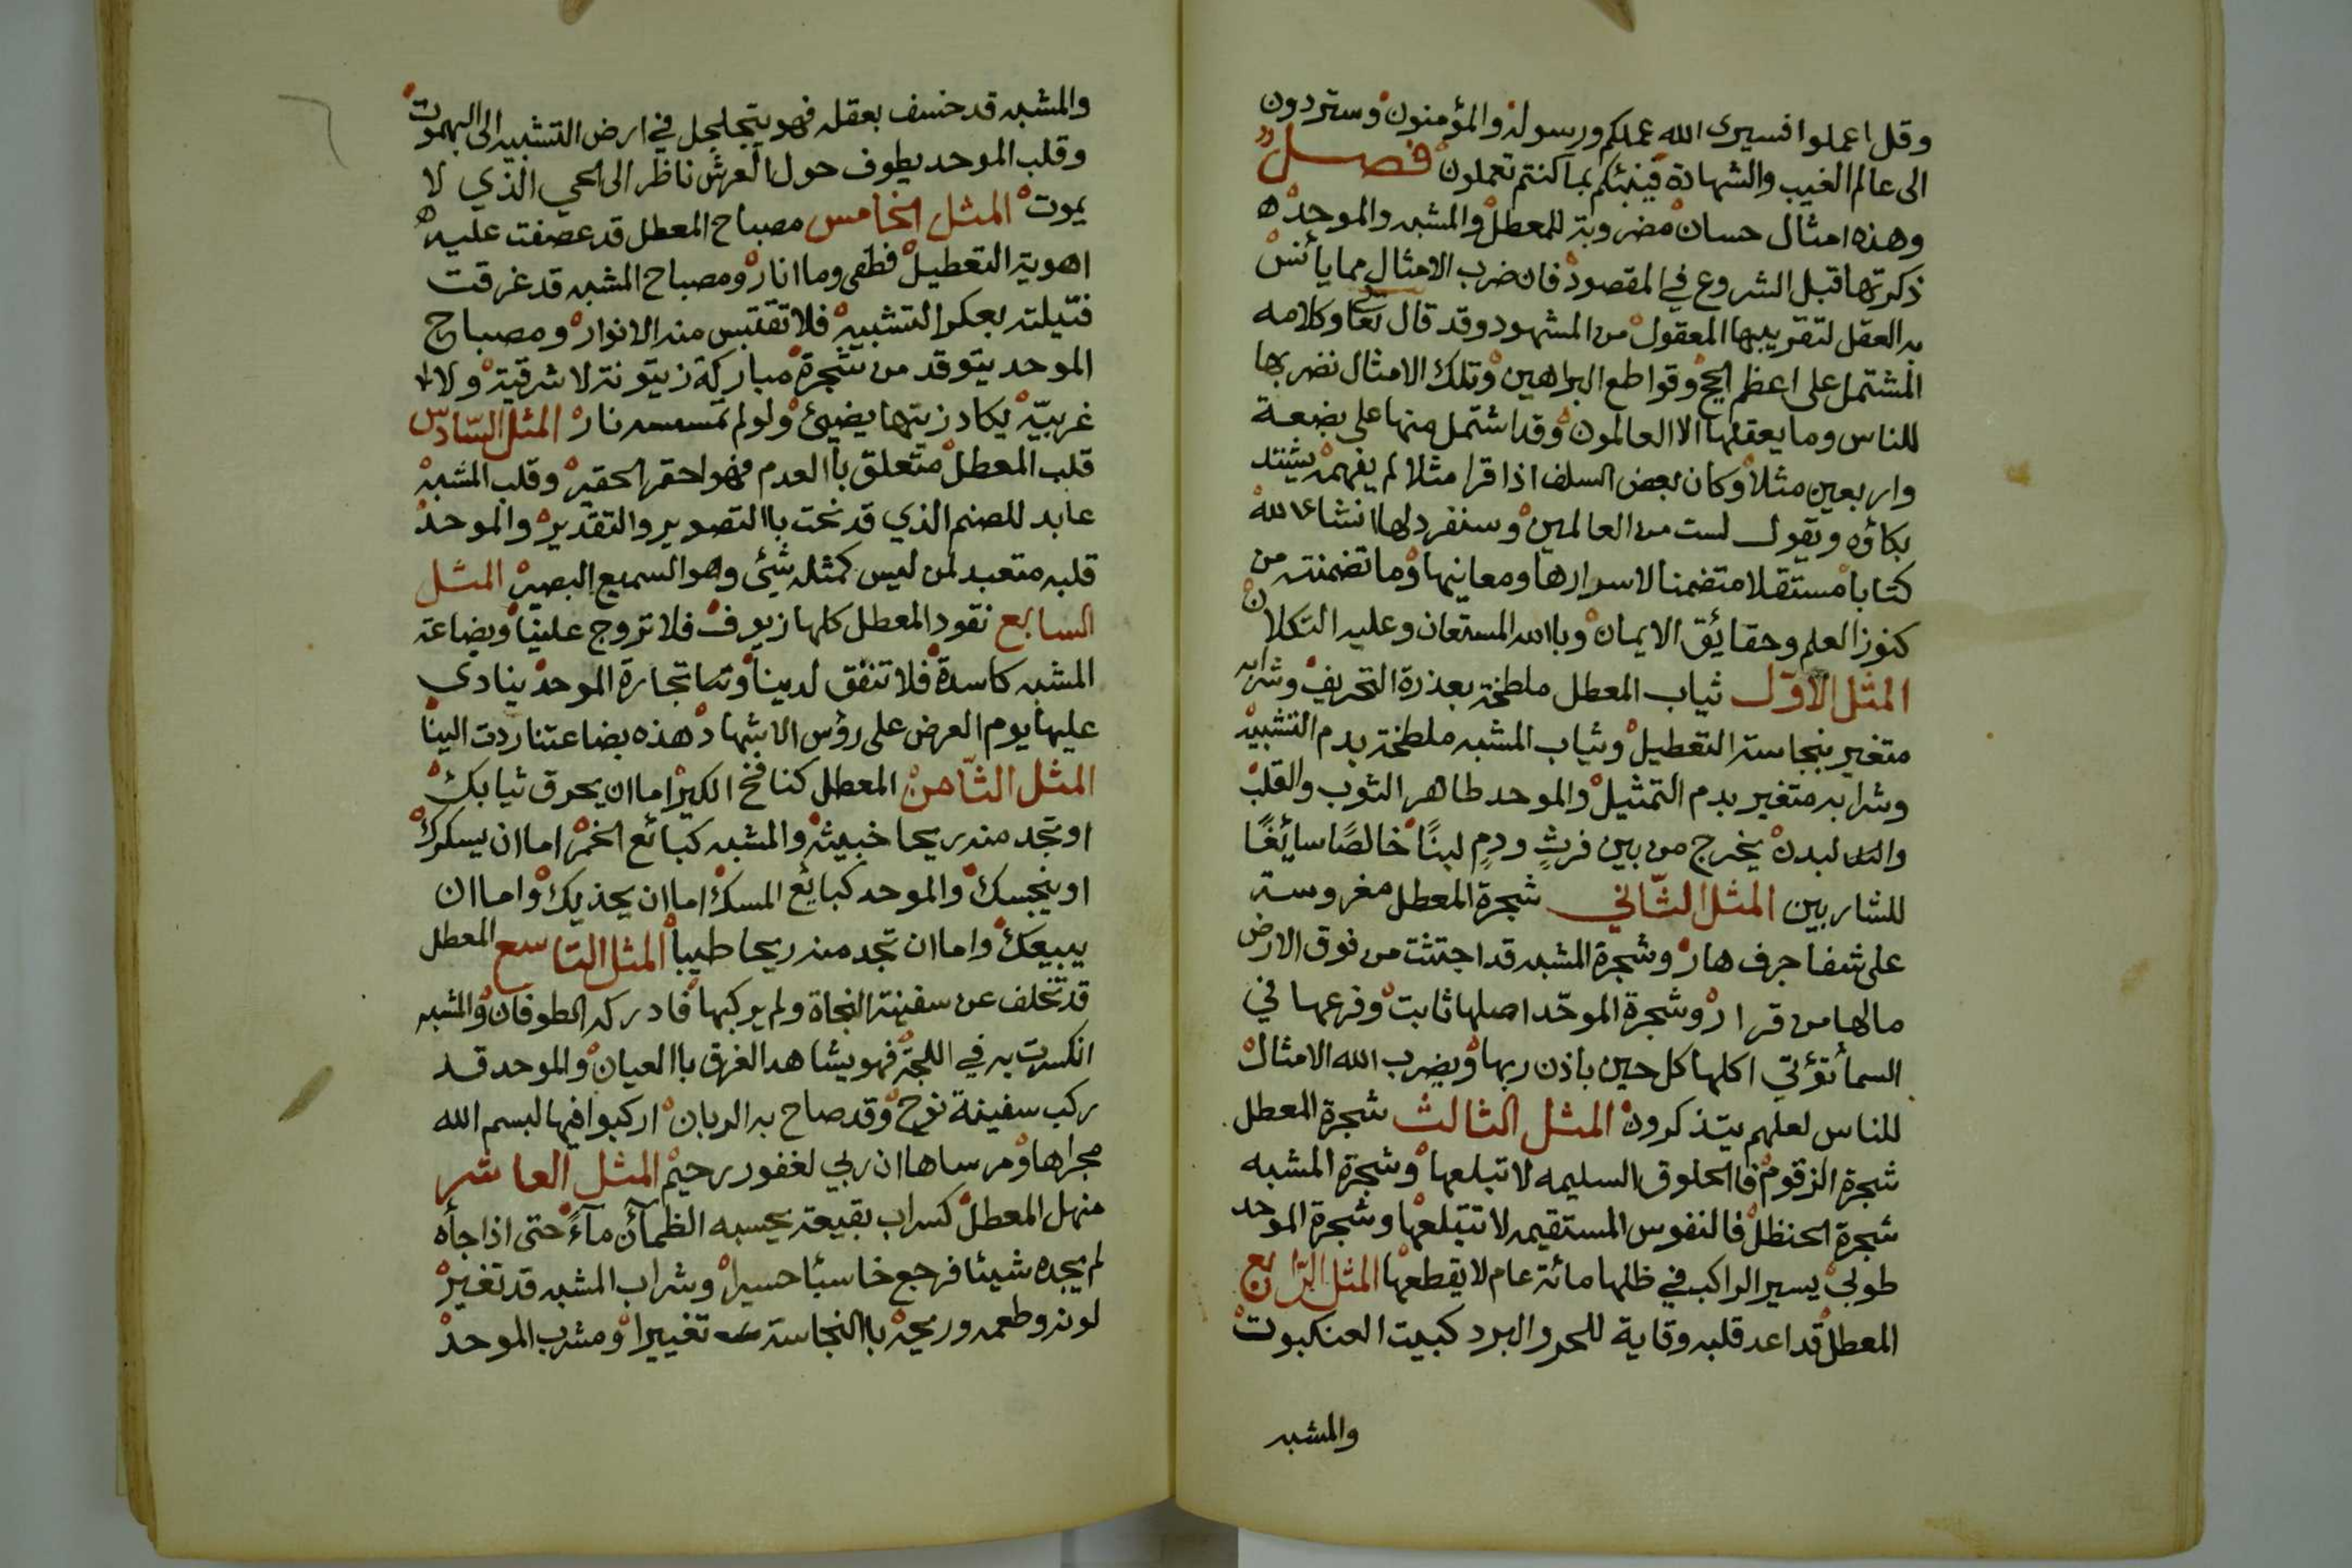 وقل اعملوا فسيرى الله عملكم ورسوله والمؤمنون وستردون
الى عالم الغيب والشهادة فينبئكم بما كنتم تعملون فصل
وهذه امثال حسان مضروبة للمعطل والمشبه والموحد ه
ذكرتها قبل الشروع في المقصود فان ضرب الامثال مما يأنس
به العقل لتقريبها المعقول من المشهود وقد قال تعا وكلامه
المشتمل على اعظم الحج وقواطع البراهين وتلك الامثال نضربها
للناس وما يعقلها الا العالمون وقد اشتمل منها على بضعة
واربعين مثلا وكان بعض السلف اذا قرا مثلا لم يفهمه يشتد
بكاؤه ويقول لست من العالمين وسنفرد لها انشاء الله
كتابا مستقلا متضمنا لاسرارها ومعانيها وما تضمنته من
كنوز العلم وحقايق الايمان وبالله المستعان وعليه التكلان
المثل الاول ثياب المعطل ملطخة بعذرة التحريف وشرابه
متغير بنجاسة التعطيل وثياب المشبه ملطخة بدم التشبيه
وشرابه متغير بدم التمثيل والموحد طاهر الثوب والقلب
والبدن يخرج من بين فرثٍ ودمٍ لبنًا خالصًا سائغًا
للشاربين المثل الثاني شجرة المعطل مغروسة
على شفا جرف هار وشجرة المشبه قد اجتثت من فوق الارض
مالها من قرار وشجرة الموحّد اصلها ثابت وفرعها في
السمأ تؤتي اكلها كل حين باذن ربها ويضرب الله الامثال
للناس لعلهم يتذكرون المثل الثالث شجرة المعطل
شجرة الزقوم فالحلوق السليمه لا تبلعها وشجرة المشبه
شجرة الحنظل فالنفوس المستقيمه لا تتبلعها وشجرة الموحد
طوبى يسير الراكب في ظلها مائة عام لا يقطعها المثل الرابع
المعطل قد اعد قلبه وقاية للحر والبرد كبيت العنكبوت
والمشبه
والمشبه قد خسف بعقله فهو يتجلجل في ارض التشبيه الى البهموت
وقلب الموحد يطوف حول العرش ناظر الى الحي الذي لا
يموت المثل الخامس مصباح المعطل قد عصفت عليه
اهوية التعطيل فطفى وما انار ومصباح المشبه قد غرقت
فتيلته بعكر التشبيه فلا تقتبس منه الانوار ومصباح
الموحد يتوقد من شجرة مباركة زيتونة لا شرقية ولا
غربيّة يكاد زيتها يضيئ ولو لم تمسسه نار المثل السّادس
قلب المعطل متعلق باالعدم فهو احقر الحقير وقلب المشبه
عابد للصنم الذي قد نحت باالتصوير والتقدير والموحد
قلبه متعبد لمن ليس كمثله شئى وهو السميع البصير المثل
السابع نقود المعطل كلها زيوف فلا تروج علينا وبضاعة
المشبه كاسدة فلا تنفق لدينا وتتا تجارة الموحد ينادى
عليها يوم العرض على رؤس الاشهاد هذه بضاعتنا ردت الينا
المثل الثّامن المعطل كنافخ الكير اما ان يحرق ثيابك
او تجد منه ريحا خبيثه والمشبه كبائع الخمر اما ان يسكرك
او ينجسك والموحد كبايع المسك اما ان يحذيك واما ان
يبيعك واما ان تجد منه ريحا طيبا المثل التاسع المعطل
قد تخلف عن سفينة النجاة ولم يركبها فادركه الطوفان والمشبه
انكسرت به في اللجة فهو يشاهد الغرق باالعيان والموحد قد
ركب سفينة نوح وقد صاح به الربان اركبوا فيها لبسم الله
مجراها ومرساها ان ربي لغفور رحيم المثل العاشر
منهل المعطل كسراب بقيعة يحسبه الظمآن مآءً حتى اذا جأه
لم يجده شيئا فرجع خاسئا حسيرا وشراب المشبه قد تغير
لونه وطعمه وريحه باالنجاسة تغييرا ومشرب الموحد